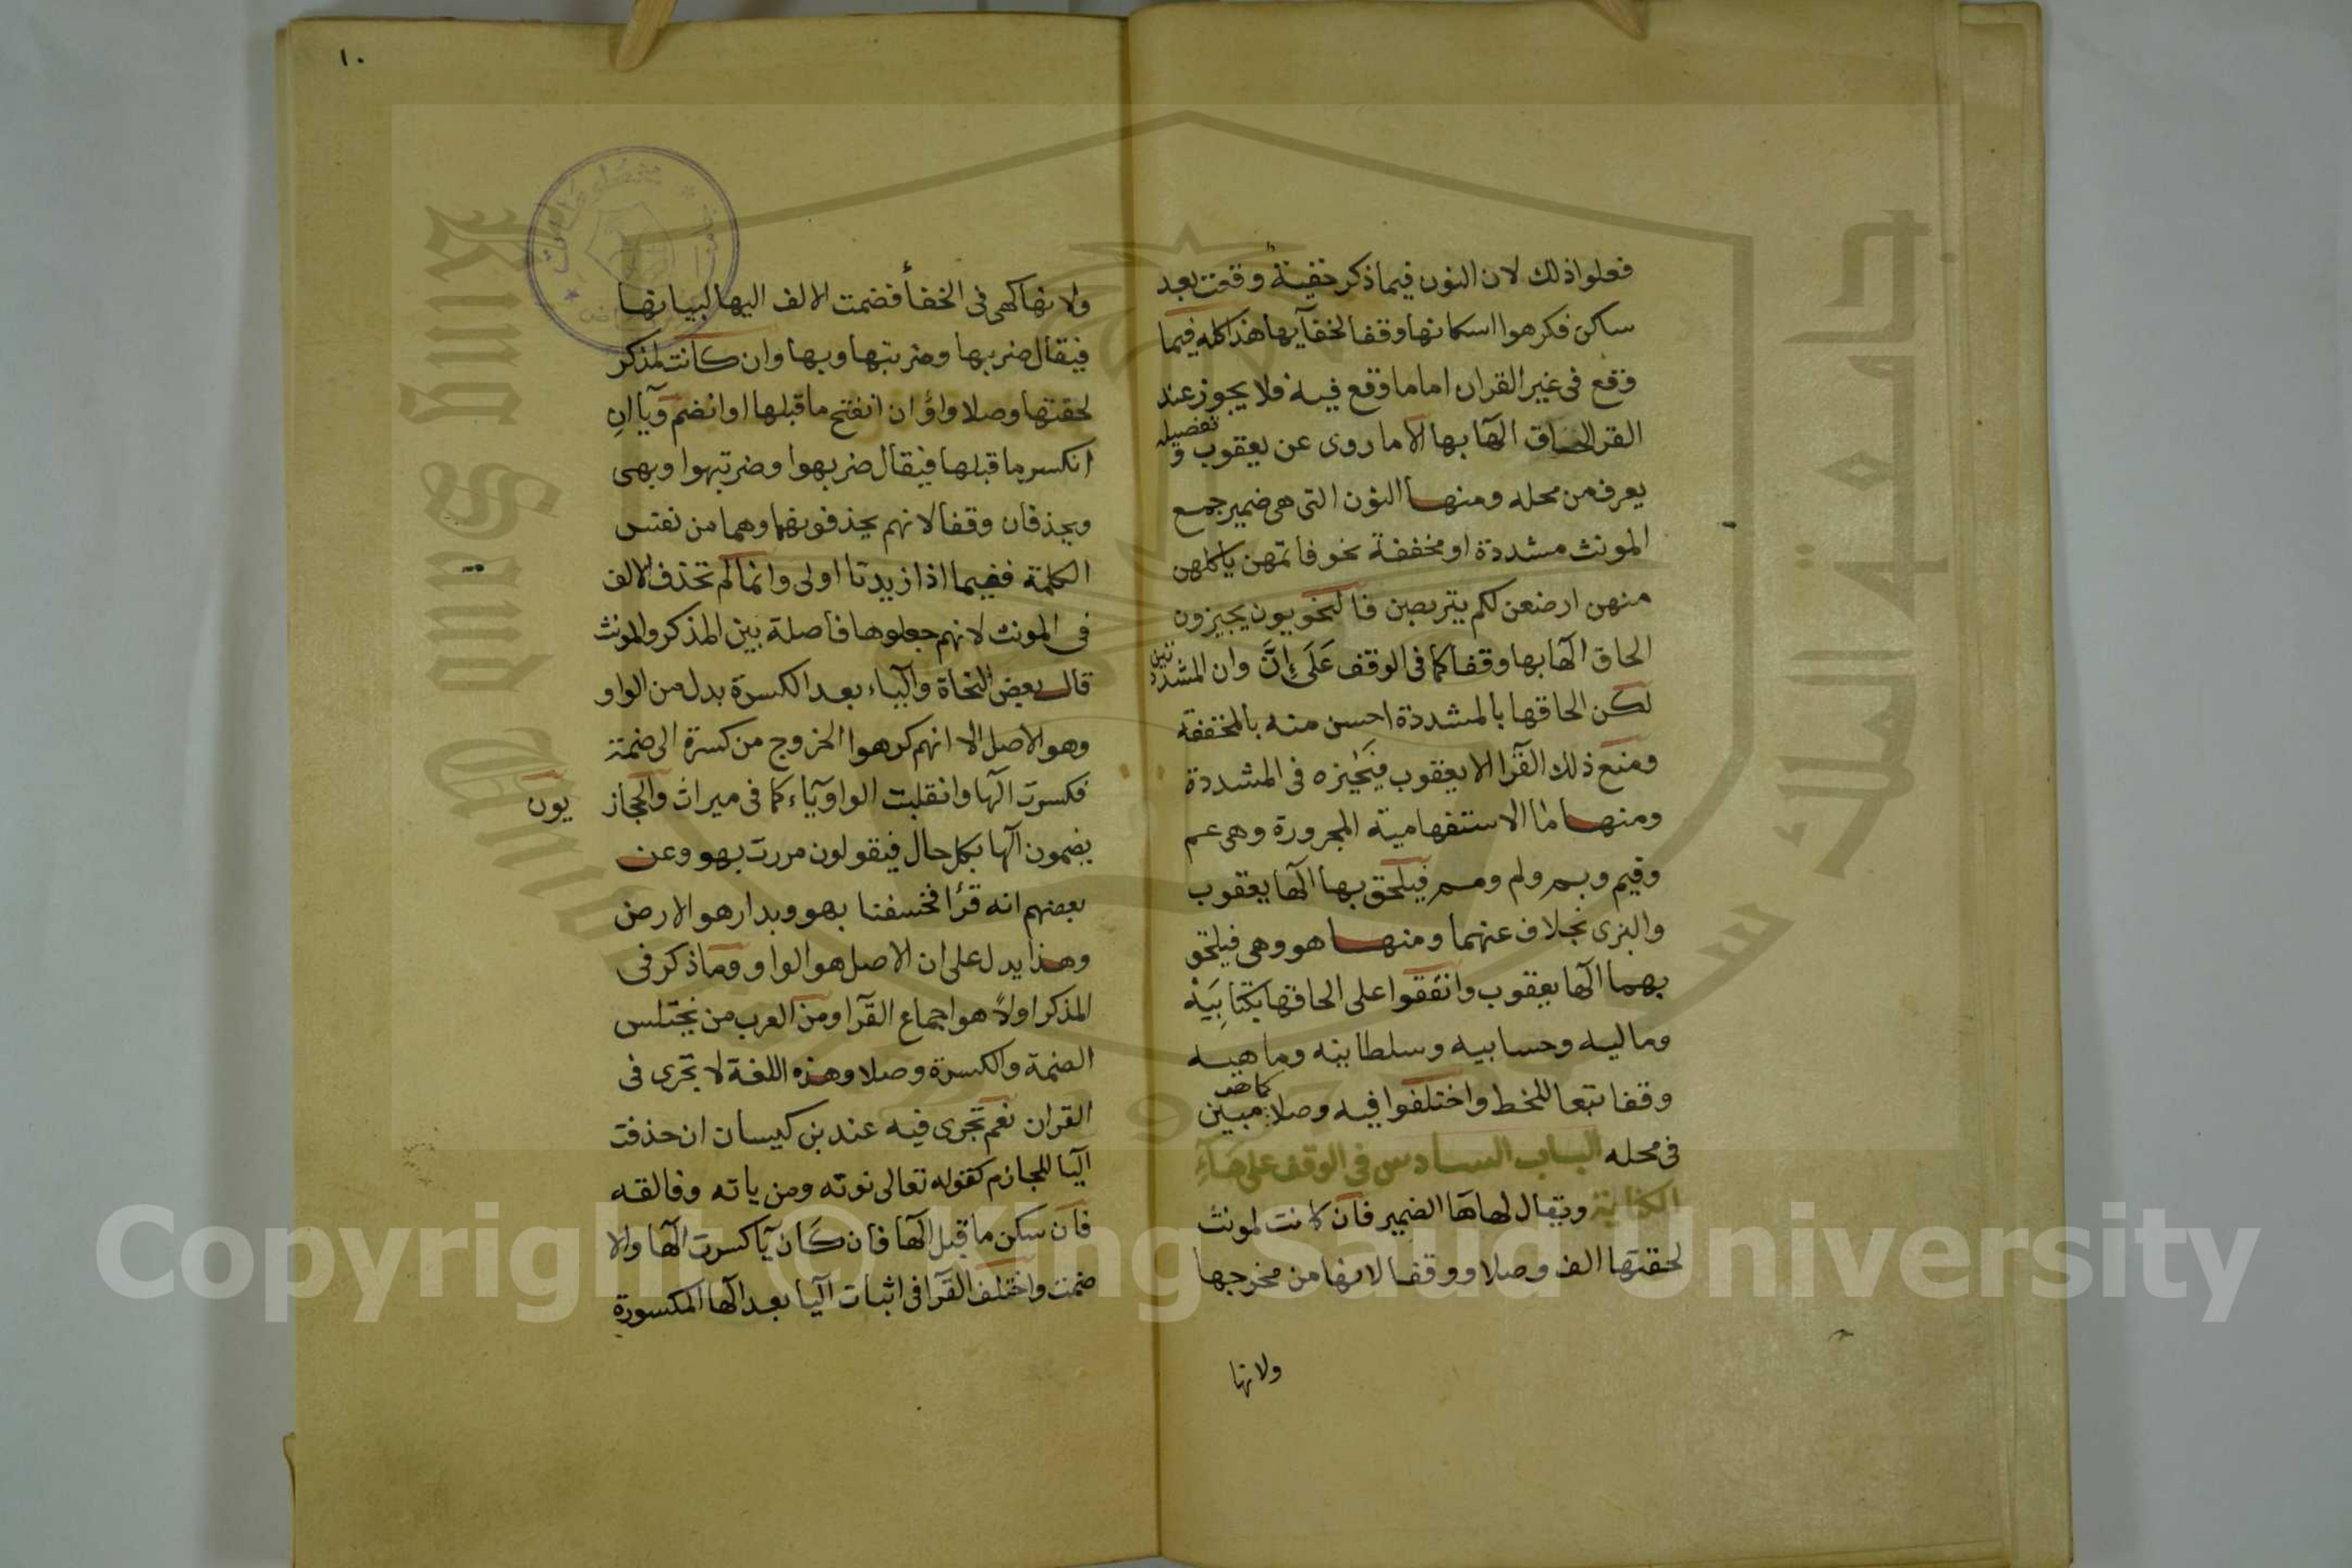 فعلوا ذلك لان النون فيما ذكر خفيفة وقعت بعد
ساكن فكرهوا اسكانها وقفا لخفآيها هذا كله فيما
وقع في غير القران اما ما وقع فيه فلا يجوز عند
القرا الحاق الهآ بها الا ما روى عن يعقوب و تفصيله
يعرف من محله ومنها النون التي هي ضمير جمع
المونث مشددة او مخففة نحو فاتمهن ياكلهن
منهن ارضعن لكم يتربصن فالنحويون يجيزون
الحاق الهآ بها وقفا كما في الوقف على إنَّ وان المشددتين
لكن الحاقها بالمشددة احسن منه بالمخففة
ومنع ذلك القرآ الا يعقوب فيجيزه في المشددة
ومنها ما الاستفهامية المجرورة وهي عم
وفيم وبم ولم ومم فيلحق بها الهآ يعقوب
والبزى بخلاف عنهما ومنها هو وهي فيلحق
بهما الهآ يعقوب واتفقوا على الحاقها بكتابيه
وماليه وحسابيه وسلطانيه وماهيه
وقفا تبعا للخط واختلفوا فيه وصلا كما هو مبين
في محله الباب السادس في الوقف على هآء
الكناية ويقال لها هآ الضمير فان كانت لمونث
لحقتها الف وصلا ووقفا لانها من مخرجها
ولانها
١٠
ولانها كهي في الخفأ فضمت الالف اليها لبيانها
فيقال ضربها وضربتها وبها وان كانت لمذكر
لحقتها وصلا واوٌ ان انفتح ما قبلها او انضم ويآ انِ
انكسر ما قبلها فيقال ضربهوا وضربتهوا وبهى
ويحذفان وقفا لانهم يحذفونهما وهما من نفس
الكلمة ففيما اذا زيدتا اولى وانما لم تحذف الالف
في المونث لانهم جعلوها فاصلة بين المذكر والمونث
قال بعض النحاة واليآء بعد الكسرة بدل من الواو
وهو الاصل الا انهم كرهوا الخروج من كسرة الى ضمة
فكسرت الهآ وانقلبت الواو يآء كما في ميراث والحجازيون
يضمون الهآ بكل حال فيقولون مررت بهو وعن
بعضهم انه قرأ فخسفنا بهو وبدارهو الارض
وهذا يدل على ان الاصل هو الواو وما ذكر في
المذكر اولاً هو اجماع القرآ ومن العرب من يختلس
الضمة والكسرة وصلا وهذه اللغة لا تجرى في
القران نعم تجرى فيه عند بن كيسان ان حذفت
اليآ للجازم كقوله تعالى نوته ومن ياته وفالقه
فان سكن ما قبل الهآ فان كان يآ كسرت الهآ والا
ضمت واختلف القرآ في اثبات اليآ بعد الهآ المكسورة
جامعة الملك سعود
King Saud University
1957
Copyright © King Saud University